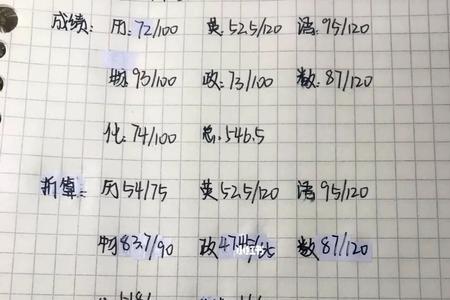 成绩: 历:72/100 英:52.5/120 语:95/120
物:93/100 政:73/100 数:87/120
化:74/100 总:546.5
折算: 历54/75 英52.5/120 语95/120
物83.7/90 政47.45/65 数87/120